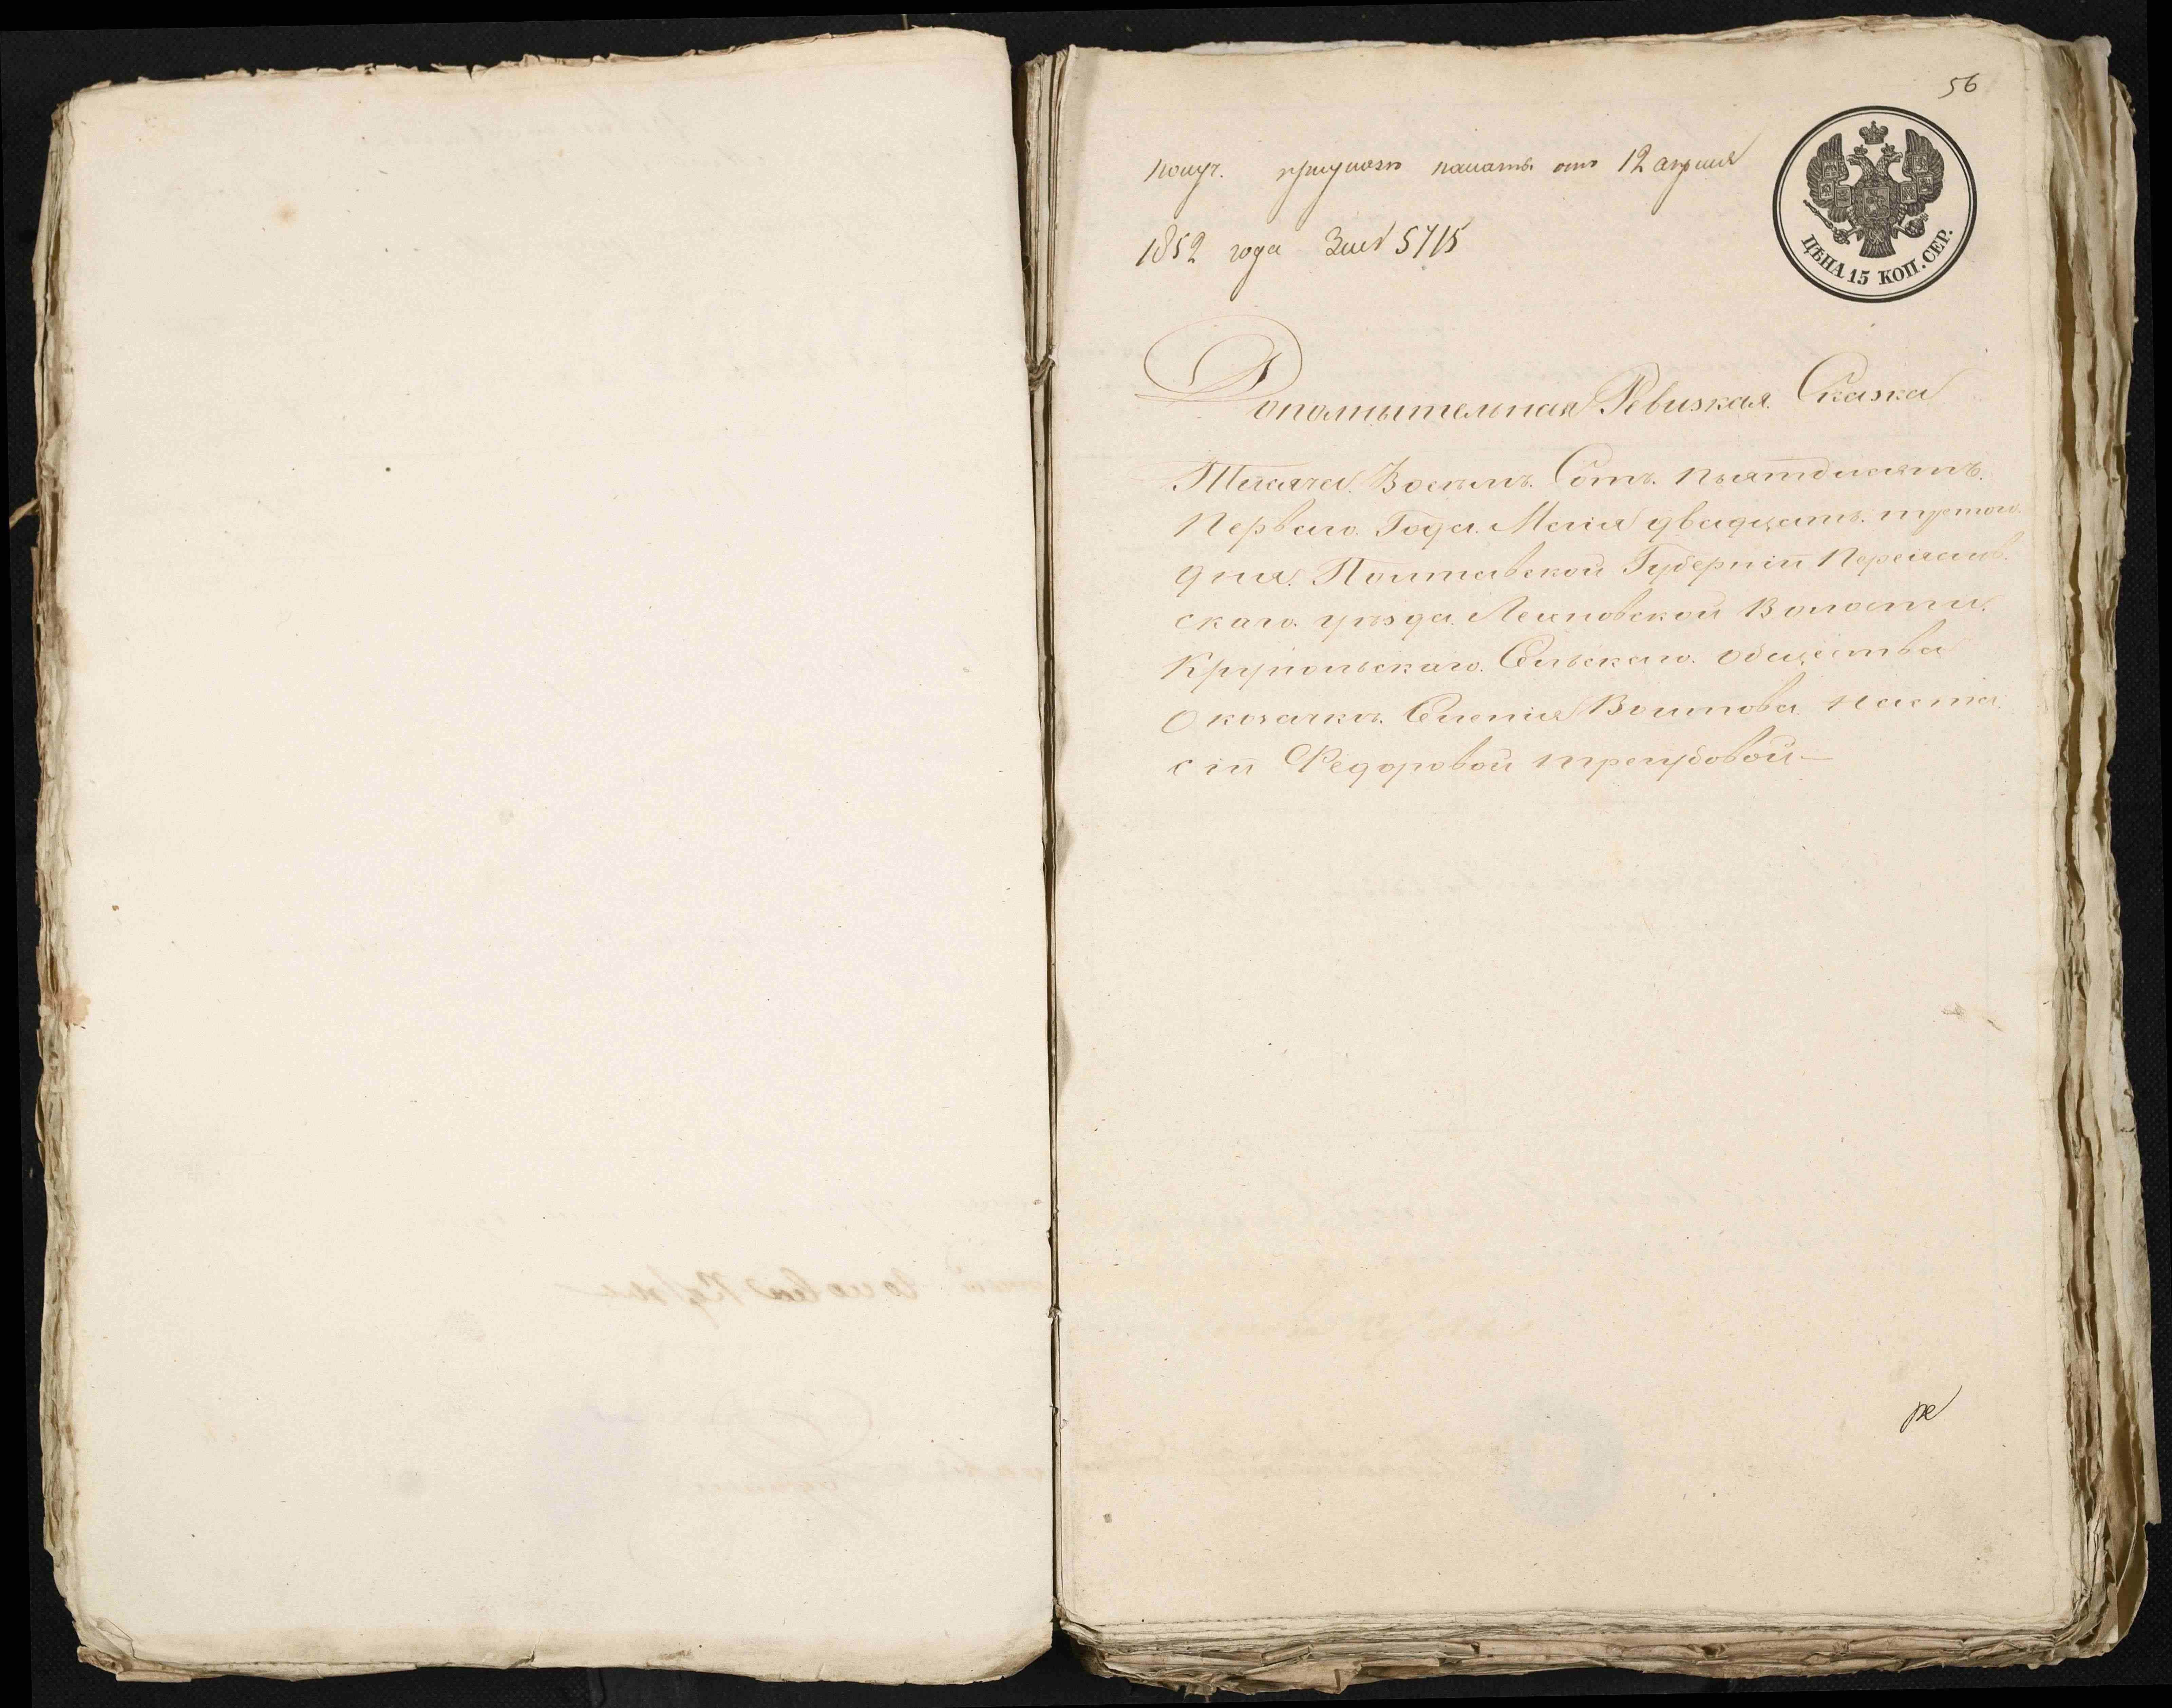 56
получ. при указѣ палаты отъ 12 апрѣля
1852 года За № 5715
ЦѢНА 15 КОП. СЕР.
Дополнытельная Ревизкая Сказка
Тысяча Восемъ Сотъ Пьятдисятъ
Перваго Года Маія двадцатъ третого
дня Полтавской Губерніи Переяслав
скаго уѣзда Лепловской Волости
Крупольскаго Сельскаго Общества
О козачкѣ Селенія Воитова Наста
сіи Федоровой трегубовой